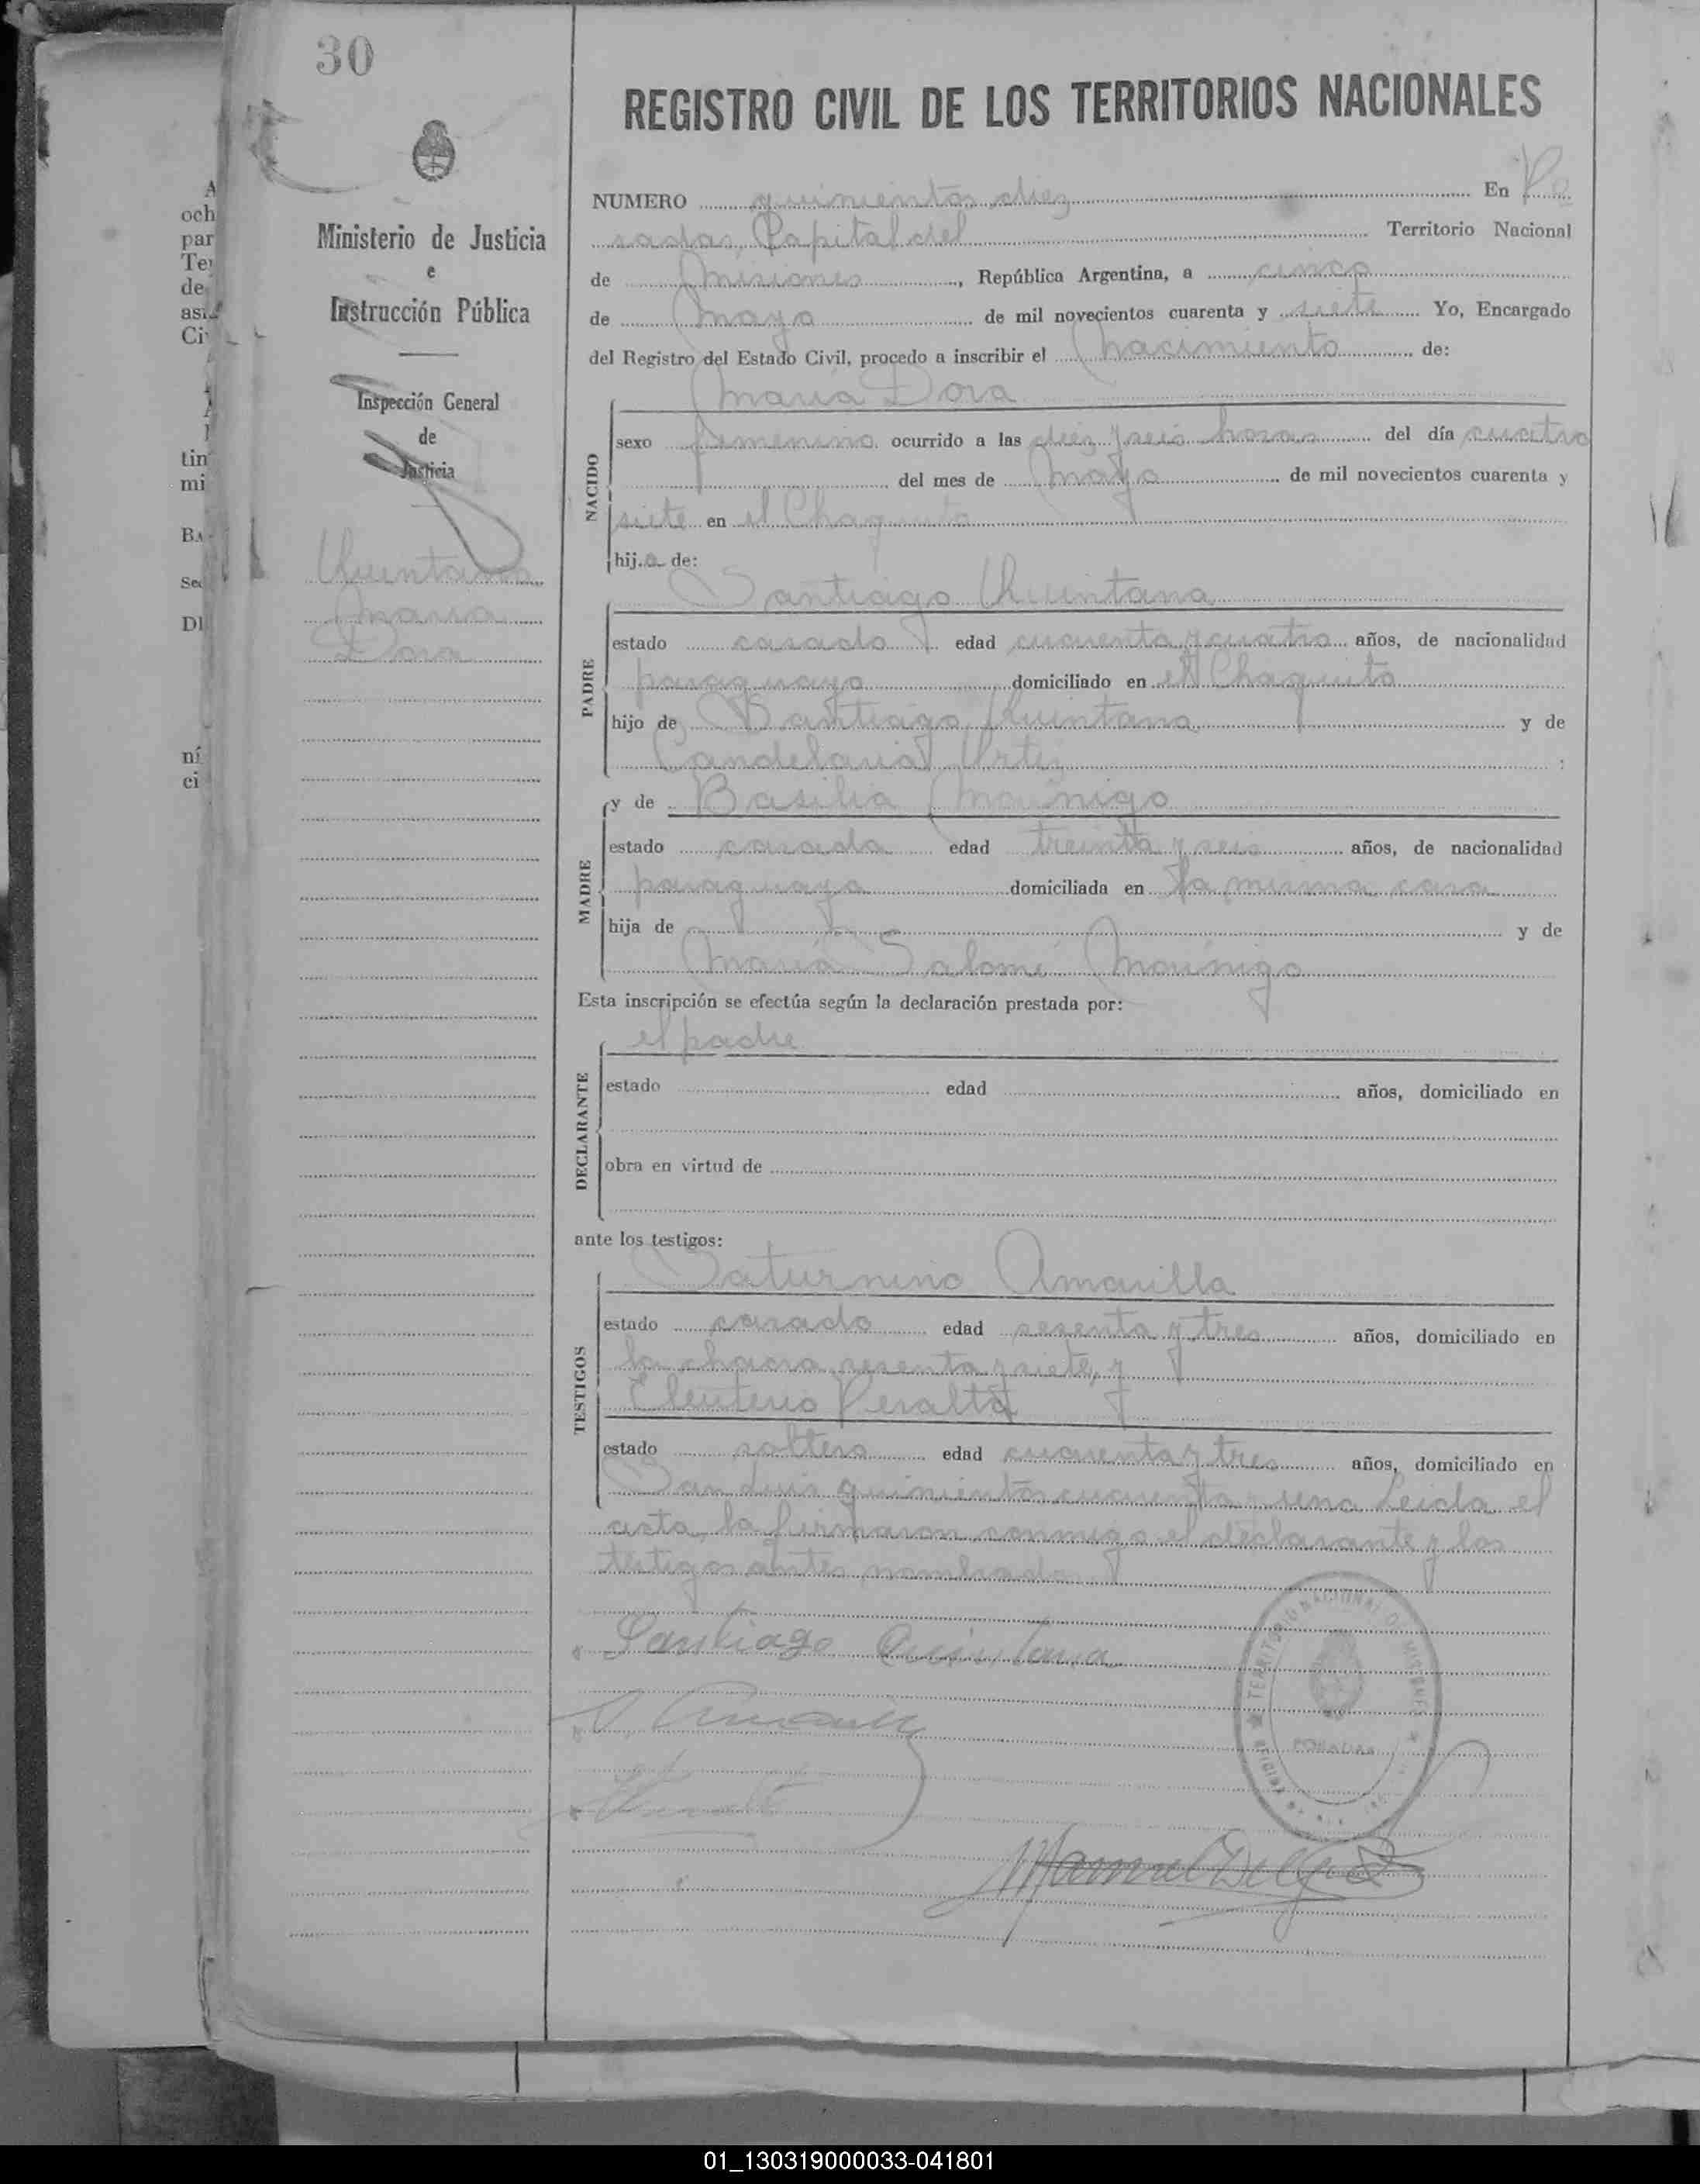 30
REGISTRO CIVIL DE LOS TERRITORIOS NACIONALES
Ministerio de Justicia
e
Instrucción Pública
Inspección General
de
Justicia
Quintana
Maria
Dora
NUMERO quinientos diez En Po
sadas, Capital del Territorio Nacional
de Misiones, República Argentina, a cinco
de Mayo de mil novecientos cuarenta y siete Yo, Encargado
del Registro del Estado Civil, procedo a inscribir el Nacimiento de:
Maria Dora
NACIDO
sexo femenino ocurrido a las diez y seis horas del día cuatro
del mes de Mayo de mil novecientos cuarenta y
siete en el Chaquito
hija de:
Santiago Quintana
PADRE
estado casado edad cuarenta y cuatro años, de nacionalidad
paraguayo domiciliado en el Chaquito
hijo de Santiago Quintana y de
Candelaria Ortiz :
MADRE
y de Basilia Morinigo
estado casada edad treinta y seis años, de nacionalidad
paraguaya domiciliada en la misma casa
hija de y de
Maria Salomé Morinigo
Esta inscripción se efectúa según la declaración prestada por:
el padre
DECLARANTE
estado edad años, domiciliado en
obra en virtud de
ante los testigos:
Saturnino Amarilla
TESTIGOS
estado casado edad sesenta y tres años, domiciliado en
la chacra sesenta y siete, y
Eleuterio Peralta
estado soltero edad cuarenta y tres años, domiciliado en
San Luis quinientos cuarenta y uno Leida el
acta, la firmaron conmigo el declarante y los
testigos antes nombrados
Santiago Quintana
TERRITORIO NACIONAL DE MISIONES
POSADAS
A
och
par
Te
de
asi
Ci
tin
mi
BA
Sec
DI
ní
ci
01_130319000033-041801